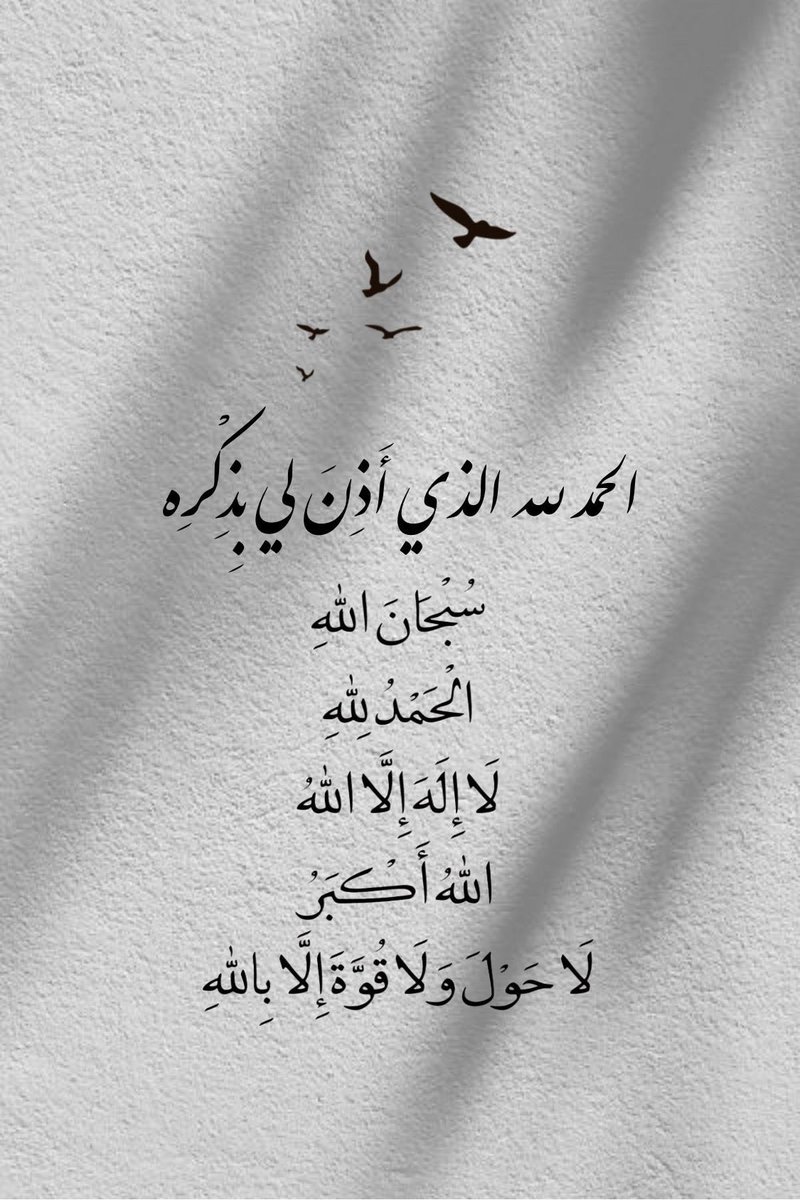 الحمد لله الذي أَذِنَ لي بِذِكْرِه
سُبْحَانَ اللهِ
الْحَمْدُ لِلهِ
لَا إِلَهَ إِلَّا اللهُ
اللهُ أَكْبَرُ
لَا حَوْلَ وَلَا قُوَّةَ إِلَّا بِاللهِ